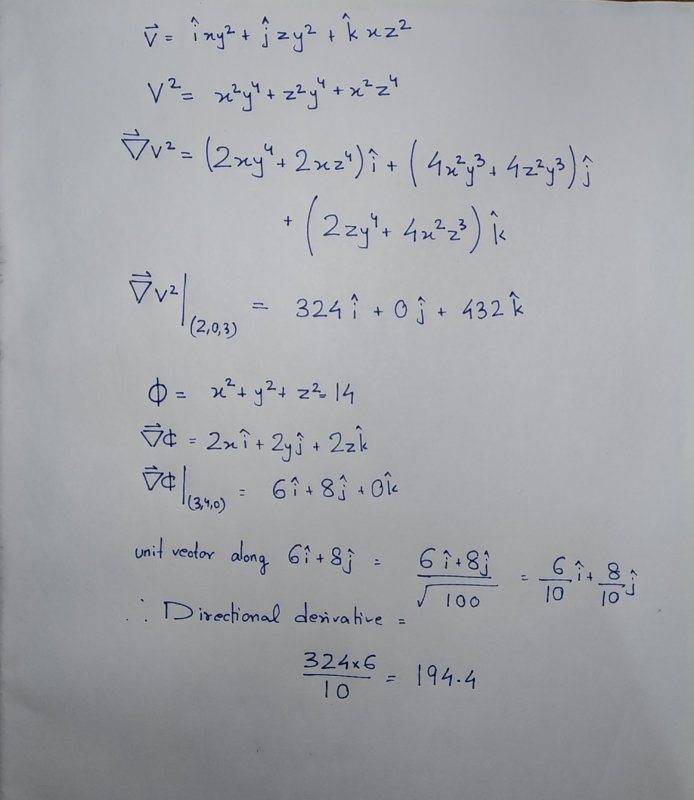 v⃗ = î xy² + ĵ zy² + k̂ xz²
V² = x²y⁴ + z²y⁴ + x²z⁴
∇⃗v² = (2xy⁴ + 2xz⁴) î + (4x²y³ + 4z²y³) ĵ
+ (2zy⁴ + 4x²z³) k̂
∇⃗v²|(2,0,3) = 324 î + 0 ĵ + 432 k̂
ϕ = x² + y² + z² - 14
∇⃗ϕ = 2xî + 2yĵ + 2zk̂
∇⃗ϕ|(3,4,0) = 6î + 8ĵ + 0k̂
unit vector along 6î + 8ĵ = (6î + 8ĵ)/√100 = 6/10 î + 8/10 ĵ
∴ Directional derivative =
(324×6)/10 = 194.4